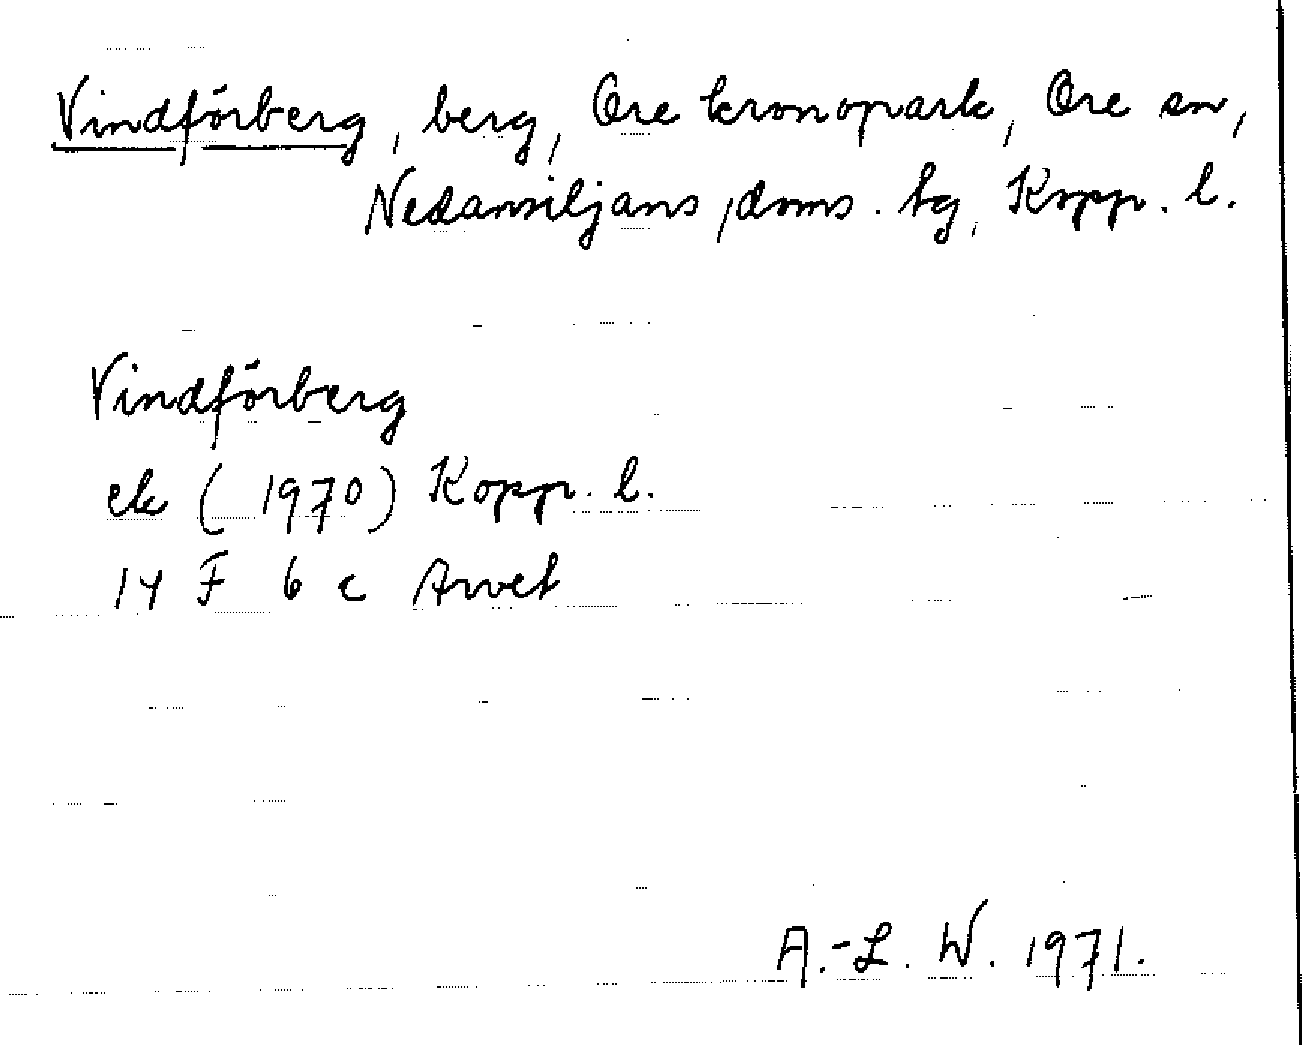 Vindförberg, berg, Ore kronopark, Ore sn,
Nedansiljans doms. tg, Kopp. l.
Vindförberg
ek (1970) Kopp. l.
14 F 6 c Arvet
A.-L. W. 1971.